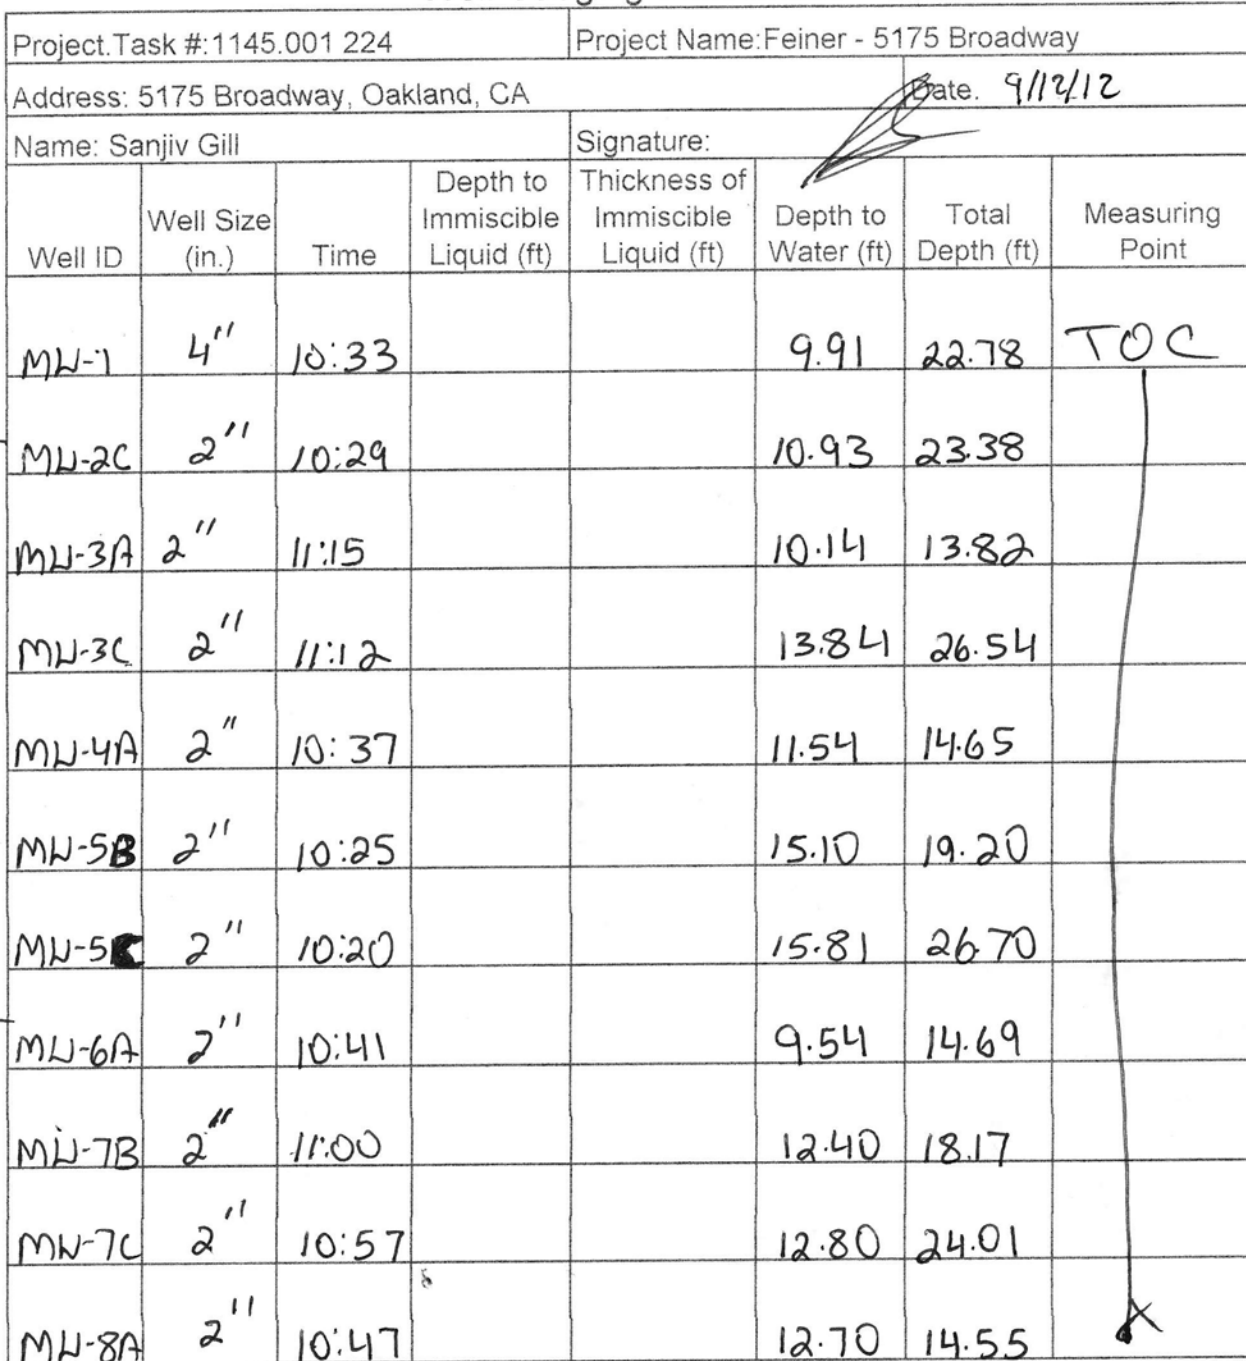 Project.Task #:1145.001 224 Project Name:Feiner - 5175 Broadway
Address: 5175 Broadway, Oakland, CA Date. 9/12/12
Name: Sanjiv Gill Signature:
Well ID Well Size (in.) Time Depth to Immiscible Liquid (ft) Thickness of Immiscible Liquid (ft) Depth to Water (ft) Total Depth (ft) Measuring Point
MW-1 4" 10:33 9.91 22.78 TOC
MW-2C 2" 10:29 10.93 23.38
MW-3A 2" 11:15 10.14 13.82
MW-3C 2" 11:12 13.84 26.54
MW-4A 2" 10:37 11.54 14.65
MW-5B 2" 10:25 15.10 19.20
MW-5C 2" 10:20 15.81 26.70
MW-6A 2" 10:41 9.54 14.69
MW-7B 2" 11:00 12.40 18.17
MW-7C 2" 10:57 12.80 24.01
MW-8A 2" 10:47 12.70 14.55